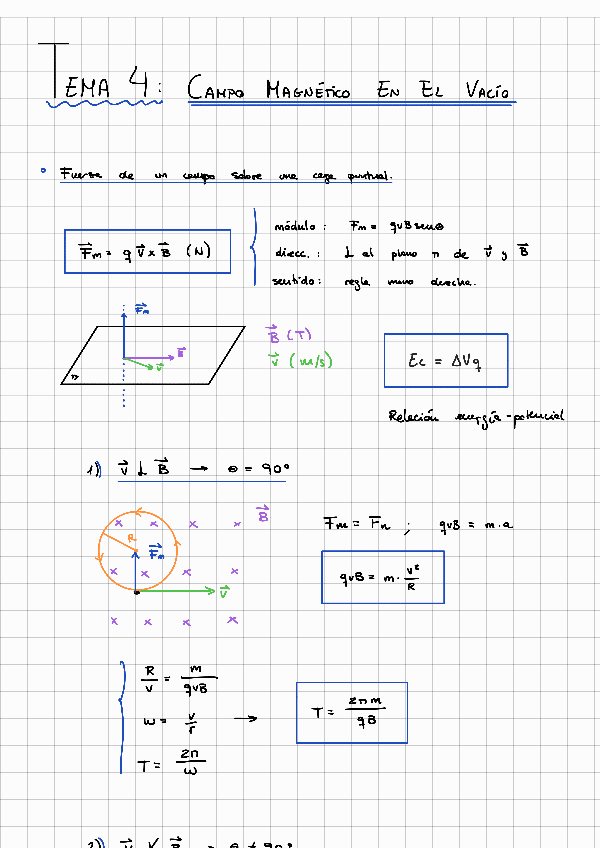 TEMA 4: CAMPO MAGNÉTICO EN EL VACÍO
Fuerza de un campo sobre una carga puntual.
F⃗m = q V⃗ x B⃗ (N)
módulo: Fm = qvB senθ
direcc.: ⊥ al plano π de V⃗ y B⃗
sentido: regla mano derecha.
F⃗m
B⃗
V⃗
π
B⃗ (T)
V⃗ (m/s)
Ec = ΔVq
Relación energía-potencial
1) V⃗ ⊥ B⃗ → θ = 90°
B⃗
R
F⃗m
V⃗
Fm = Fn ; qvB = m·a
qvB = m · v²/R
R/v = m/qvB
ω = v/r →
T = 2π/ω
T = 2πm/qB
2) V⃗ ⊥̸ B⃗ → θ ≠ 90°